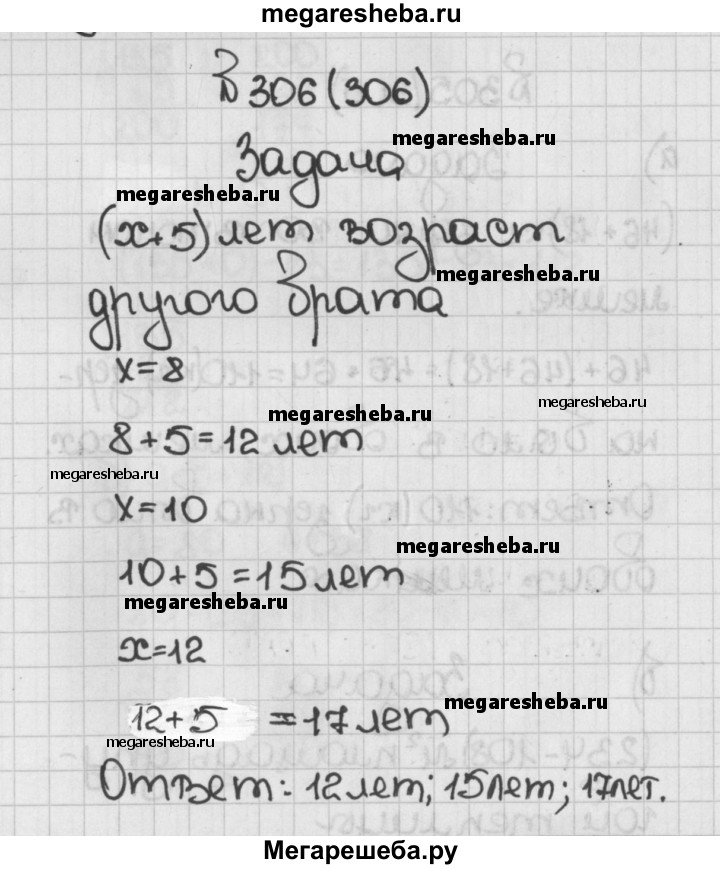 megaresheba.ru
№ 306 (306)
megaresheba.ru
Задача
megaresheba.ru
(x+5) лет возраст
megaresheba.ru
другого брата
x=8
megaresheba.ru
megaresheba.ru
8+5=12 лет
megaresheba.ru
x=10
megaresheba.ru
10+5=15 лет
megaresheba.ru
x=12
megaresheba.ru
12+5 =17 лет
megaresheba.ru
Ответ: 12 лет; 15 лет; 17 лет.
Мегарешеба.ру